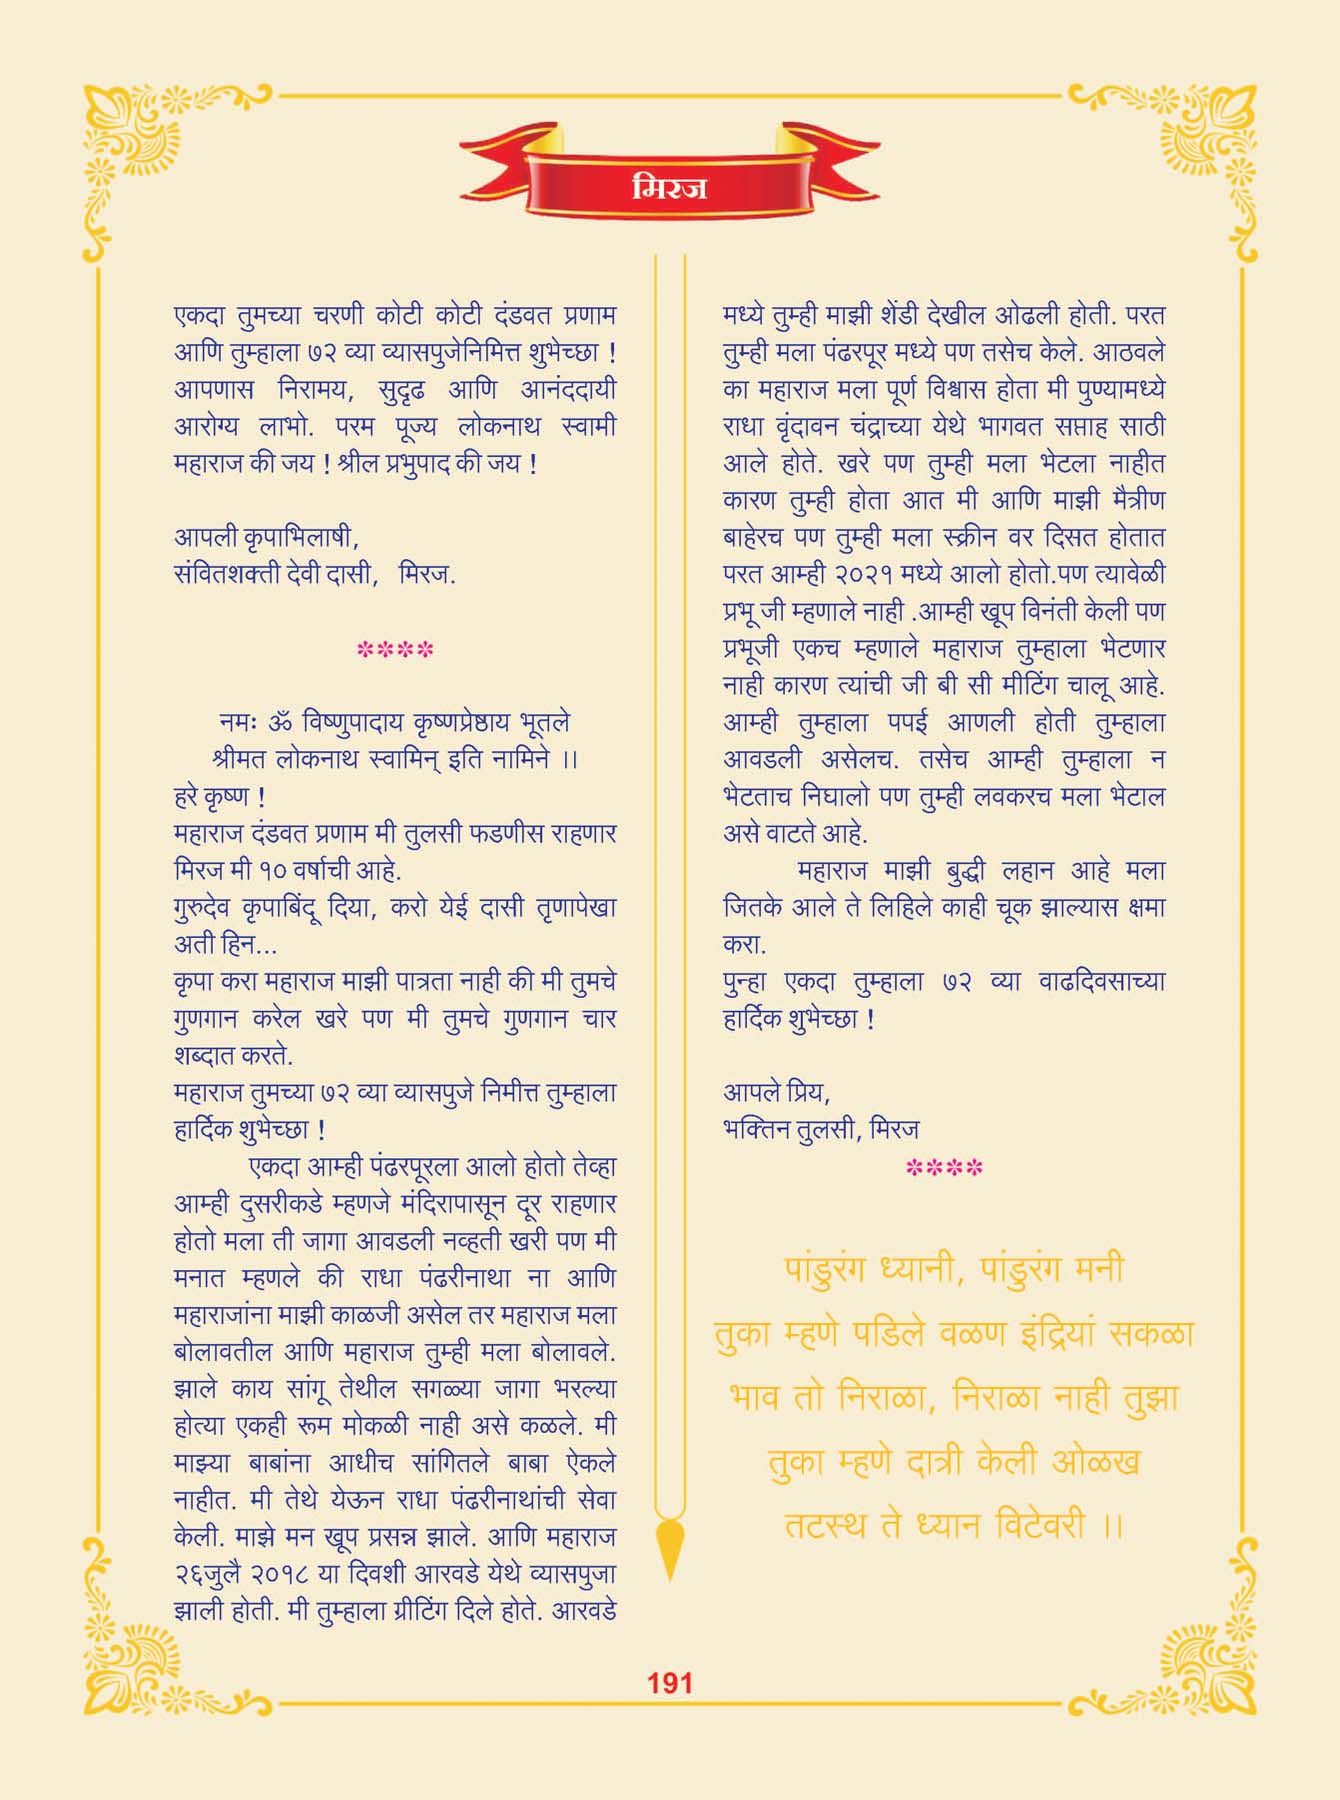 मिरज
एकदा तुमच्या चरणी कोटी कोटी दंडवत प्रणाम
आणि तुम्हाला ७२ व्या व्यासपुजेनिमित्त शुभेच्छा !
आपणास निरामय, सुदृढ आणि आनंददायी
आरोग्य लाभो. परम पूज्य लोकनाथ स्वामी
महाराज की जय ! श्रील प्रभुपाद की जय !
आपली कृपाभिलाषी,
संवितशक्ती देवी दासी, मिरज.
****
नमः ॐ विष्णुपादाय कृष्णप्रेष्ठाय भूतले
श्रीमत लोकनाथ स्वामिन् इति नामिने ।।
हरे कृष्ण !
महाराज दंडवत प्रणाम मी तुलसी फडणीस राहणार
मिरज मी १० वर्षाची आहे.
गुरुदेव कृपाबिंदू दिया, करो येई दासी तृणापेखा
अती हिन...
कृपा करा महाराज माझी पात्रता नाही की मी तुमचे
गुणगान करेल खरे पण मी तुमचे गुणगान चार
शब्दात करते.
महाराज तुमच्या ७२ व्या व्यासपुजे निमीत्त तुम्हाला
हार्दिक शुभेच्छा !
एकदा आम्ही पंढरपूरला आलो होतो तेव्हा
आम्ही दुसरीकडे म्हणजे मंदिरापासून दूर राहणार
होतो मला ती जागा आवडली नव्हती खरी पण मी
मनात म्हणले की राधा पंढरीनाथा ना आणि
महाराजांना माझी काळजी असेल तर महाराज मला
बोलावतील आणि महाराज तुम्ही मला बोलावले.
झाले काय सांगू तेथील सगळ्या जागा भरल्या
होत्या एकही रूम मोकळी नाही असे कळले. मी
माझ्या बाबांना आधीच सांगितले बाबा ऐकले
नाहीत. मी तेथे येऊन राधा पंढरीनाथांची सेवा
केली. माझे मन खूप प्रसन्न झाले. आणि महाराज
२६जुलै २०१८ या दिवशी आरवडे येथे व्यासपुजा
झाली होती. मी तुम्हाला ग्रीटिंग दिले होते. आरवडे
मध्ये तुम्ही माझी शेंडी देखील ओढली होती. परत
तुम्ही मला पंढरपूर मध्ये पण तसेच केले. आठवले
का महाराज मला पूर्ण विश्वास होता मी पुण्यामध्ये
राधा वृंदावन चंद्राच्या येथे भागवत सप्ताह साठी
आले होते. खरे पण तुम्ही मला भेटला नाहीत
कारण तुम्ही होता आत मी आणि माझी मैत्रीण
बाहेरच पण तुम्ही मला स्क्रीन वर दिसत होतात
परत आम्ही २०२१ मध्ये आलो होतो.पण त्यावेळी
प्रभू जी म्हणाले नाही .आम्ही खूप विनंती केली पण
प्रभूजी एकच म्हणाले महाराज तुम्हाला भेटणार
नाही कारण त्यांची जी बी सी मीटिंग चालू आहे.
आम्ही तुम्हाला पपई आणली होती तुम्हाला
आवडली असेलच. तसेच आम्ही तुम्हाला न
भेटताच निघालो पण तुम्ही लवकरच मला भेटाल
असे वाटते आहे.
महाराज माझी बुद्धी लहान आहे मला
जितके आले ते लिहिले काही चूक झाल्यास क्षमा
करा.
पुन्हा एकदा तुम्हाला ७२ व्या वाढदिवसाच्या
हार्दिक शुभेच्छा !
आपले प्रिय,
भक्तिन तुलसी, मिरज
****
पांडुरंग ध्यानी, पांडुरंग मनी
तुका म्हणे पडिले वळण इंद्रियां सकळा
भाव तो निराळा, निराळा नाही तुझा
तुका म्हणे दात्री केली ओळख
तटस्थ ते ध्यान विटेवरी ।।
191